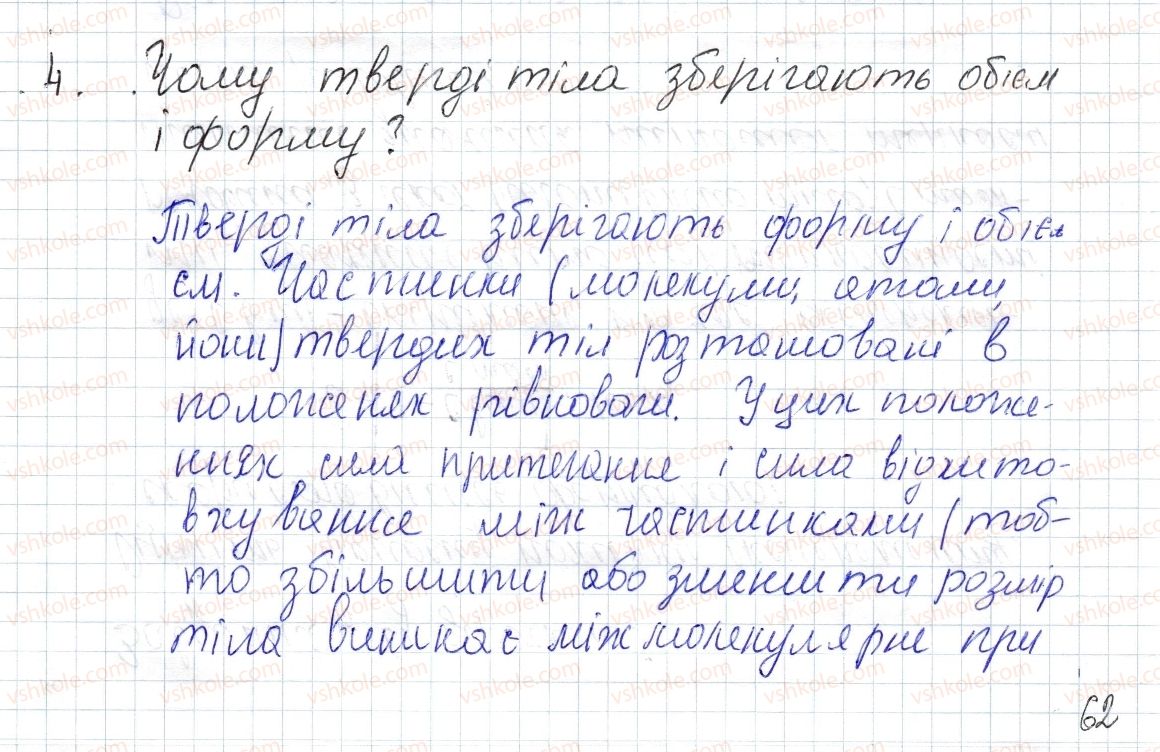 4. Чому тверді тіла зберігають обієм
і форму?
Тверді тіла зберігають форму і обіє
єм. Частинки (молекули, атоми,
йони) твердих тіл розташовані в
положенях рівноваги. У цих положе-
ннях сила притягання і сила відхито-
вхування між частинками (тоб-
то збільшити або зменшити розмір
тіла виникає міжмолекулярне при
62